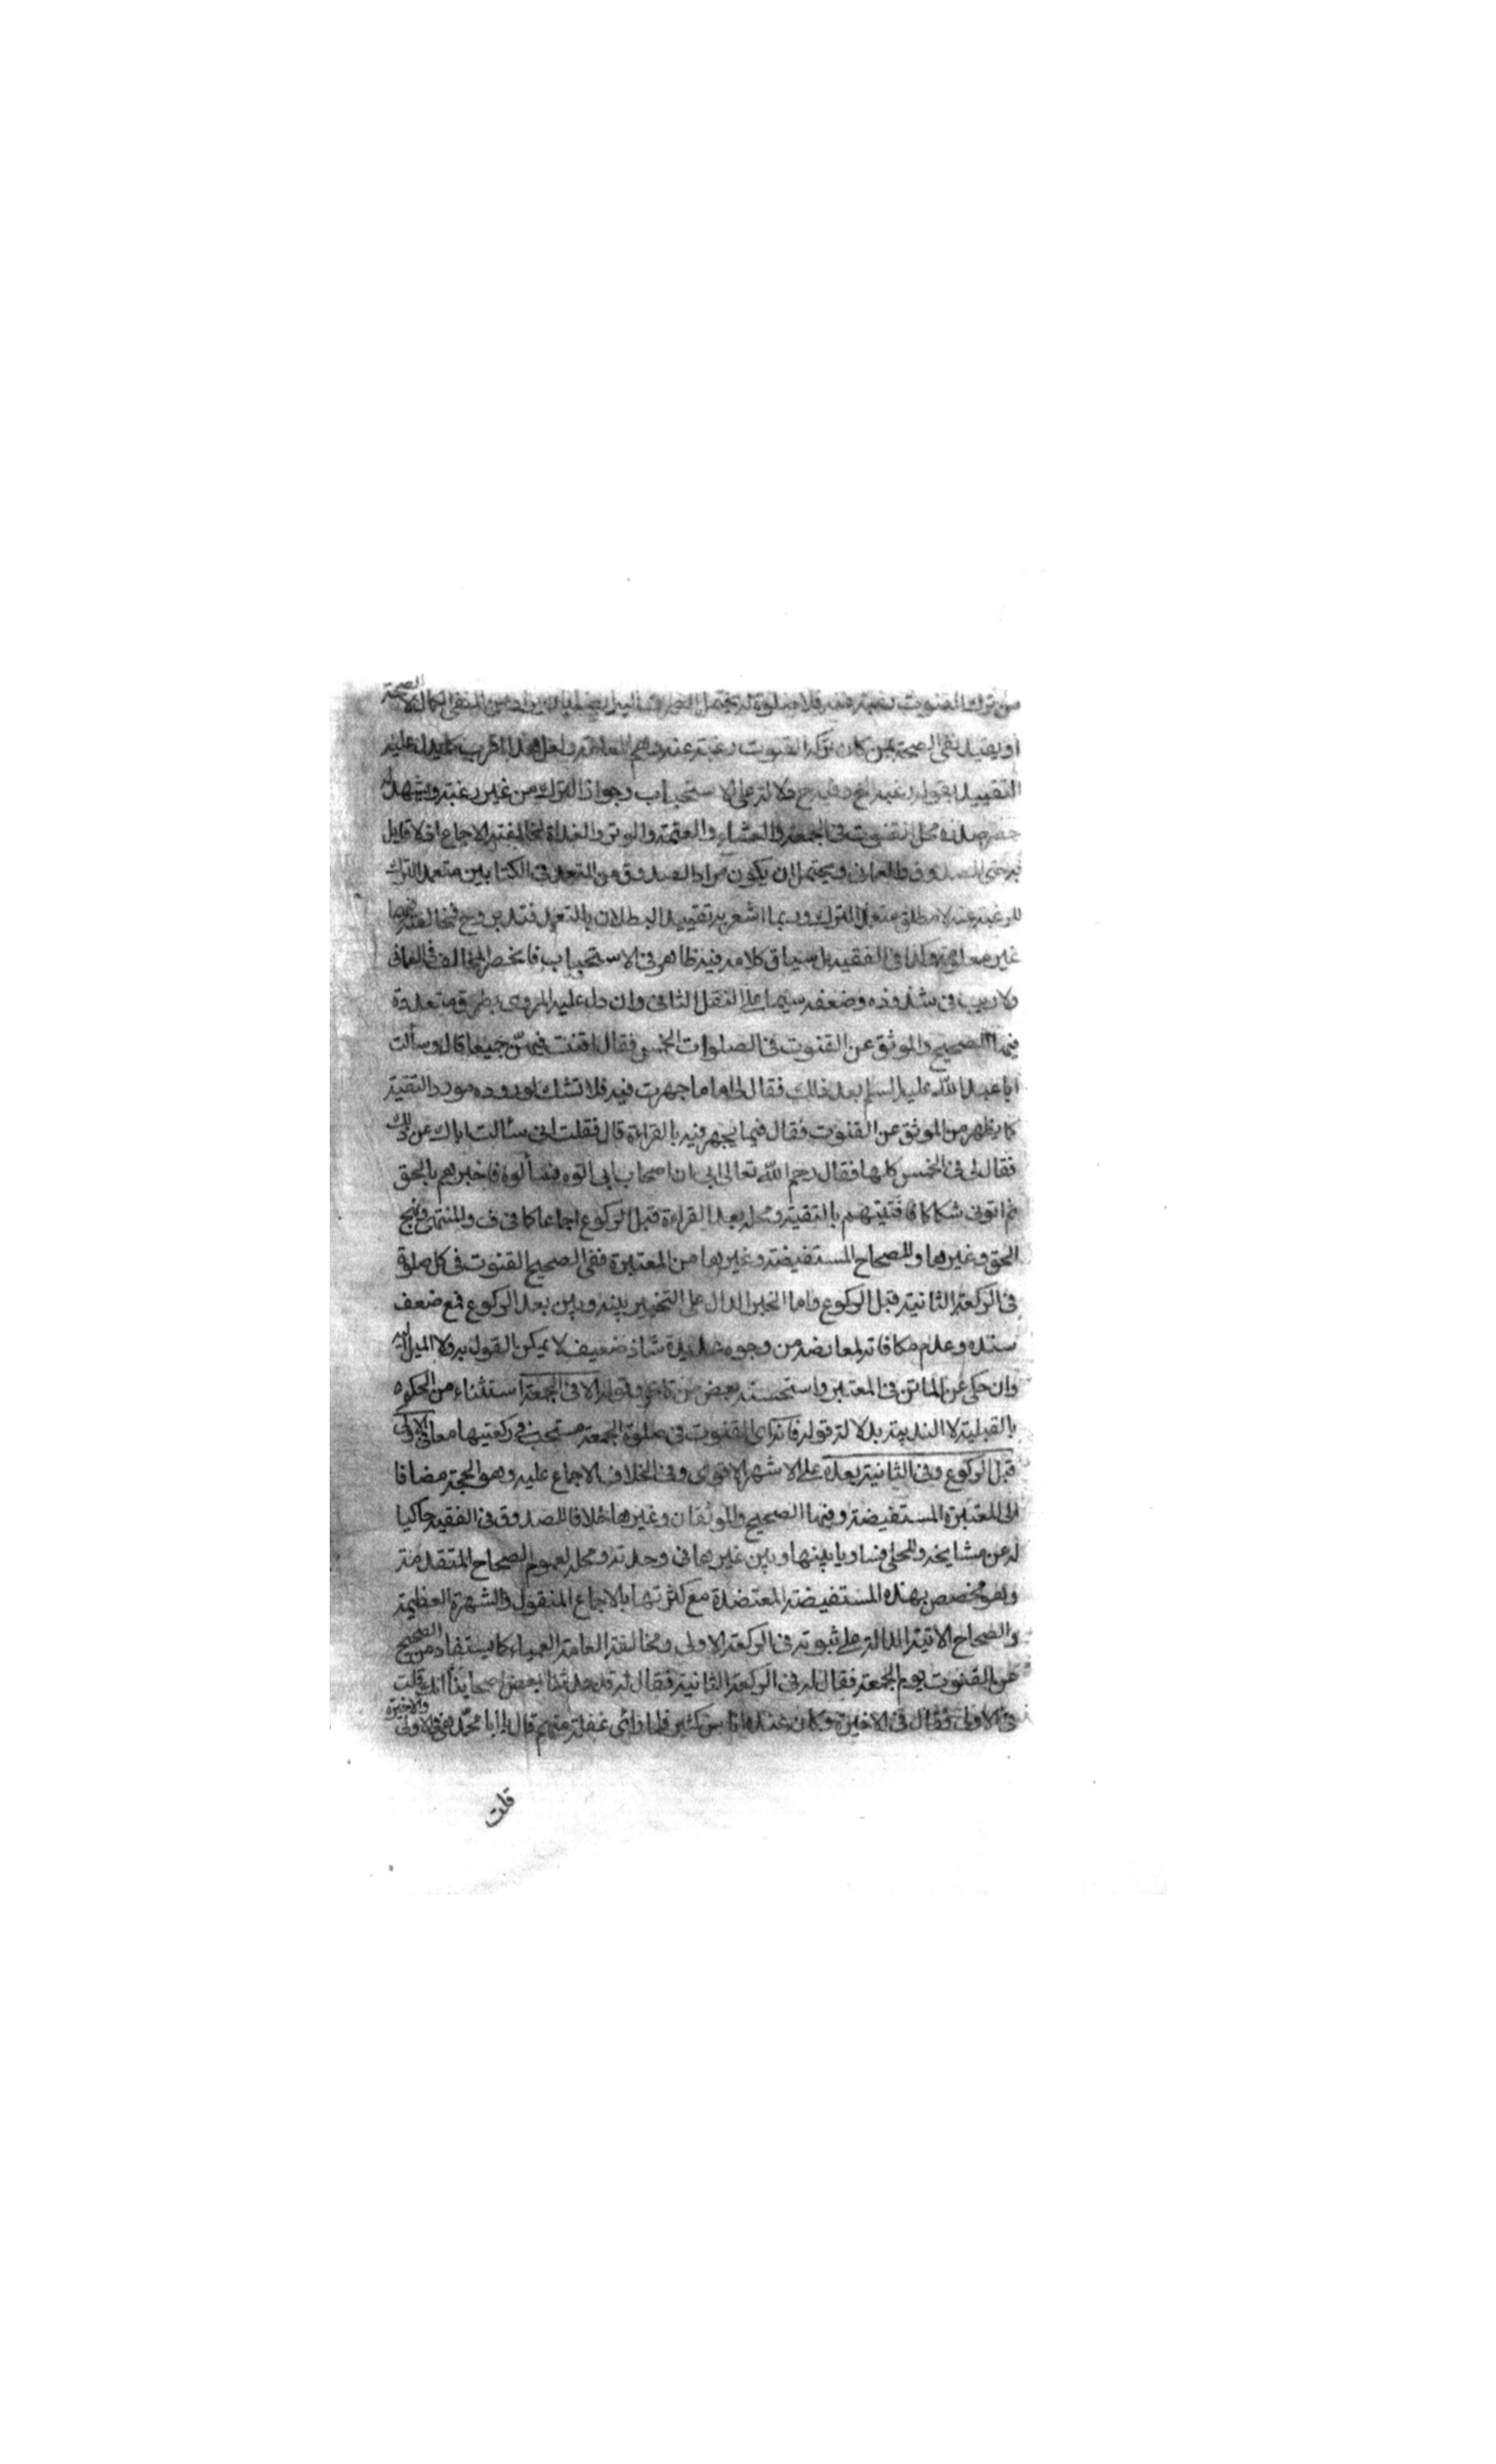 من ترك القنوت رغبة عنه فلا صلوة له يحتمل النفي الكمال لا الصحة
او يقيد نفى الصحة بمن كان تركه القنوت رغبة عنه وهم العامة ولعل هذا اقرب كما يدل عليه
التقييد بقوله رغبة الخ وفيه ح دلالة على الاستحباب وجواز الترك من غير رغبة ويشهد له
حصر هذه محل القنوت فى الجمعة والعشاء والعتمة والوتر والغداة لمخالفته الاجماع اذ لا قايل
به حتى الصدوق والعمانى ويحتمل ان يكون مراد الصدوق من التعمد فى الكتابين متعمد الترك
للرغبة عنه لا مطلق متعمد الترك وربما اشعر به تقييد البطلان بالتعمد فتدبر وح فمخالفته فيهما
غير معلومة وكذا فى الفقيه بل سياق كلامه فيه ظاهر فى الاستحباب فانحصر المخالف فى العمانى
ولا ريب فى شذوذه وضعفه سيما على النقل الثانى وان دل عليه المروى بطرق متعددة
فيها الصحيح والموثق عن القنوت فى الصلوات الخمس فقال اقنت فيهن جميعا قال وسألت
ابا عبد الله عليه السلم بعد ذلك فقال لى اما ما جهرت فيه فلا تشك لوروده مورد التقية
كما يظهر من الموثق عن القنوت فقال فيما يجهر فيه بالقراءة قال فقلت انى سألت اباك عن ذلك
فقال لى فى الخمس كلها فقال رحم الله تعالى ابى ان اصحاب ابى اتوه فسألوه فاخبرهم بالحق
ثم اتونى شكاكا فافتيتهم بالتقية ومحله بعد القراءة قبل الركوع اجماعا كما فى ف والمنتهى ونهج
الحق وغيرها والصحاح المستفيضة وغيرها من المعتبرة ففى الصحيح القنوت فى كل صلوة
فى الركعة الثانية قبل الركوع واما الخبر الدال على التخيير بينه وبين بعد الركوع فمع ضعف
سنده وعدم مكافاته لمعارضه من وجوه عديدة شاذ ضعيف لا يمكن القول به ولا الميل اليه
وان حكى عن الماتن فى المعتبر واستحسنه بعض من تاخر وقوله الا فى الجمعة استثناء من الحكم
بالقبلية لا الندبية بدلالة قوله فانه اى القنوت فى صلوة الجمعة مستحب فى ركعتيها معا فى الاولى
قبل الركوع وفى الثانية بعده على الاشهر الاقوى وفى الخلاف الاجماع عليه وهو الحجة مضافا
الى المعتبرة المستفيضة وفيها الصحيح والموثقان وغيرها خلافا للصدوق فى الفقيه حاكيا
له عن مشايخه والحلى فساويا بينها وبين غيرها فى وحدته ومحله لعموم الصحاح المتقدمة
وهو مخصص بهذه المستفيضة المعتضدة مع كثرتها بالاجماع المنقول والشهرة العظيمة
والصحاح الاتية الدالة على ثبوته فى الركعة الاولى ومخالفة العامة العمياء كما يستفاد من الصحيح
عن القنوت يوم الجمعة فقال له فى الركعة الثانية فقال له قد حدثنا بعض اصحابنا انك قلت
فى الاولى فقال فى الاخيرة وكان عنده ناس كثير فلما رأى غفلة منهم قال يا ابا محمد هى فى الاولى والاخيرة
قلت